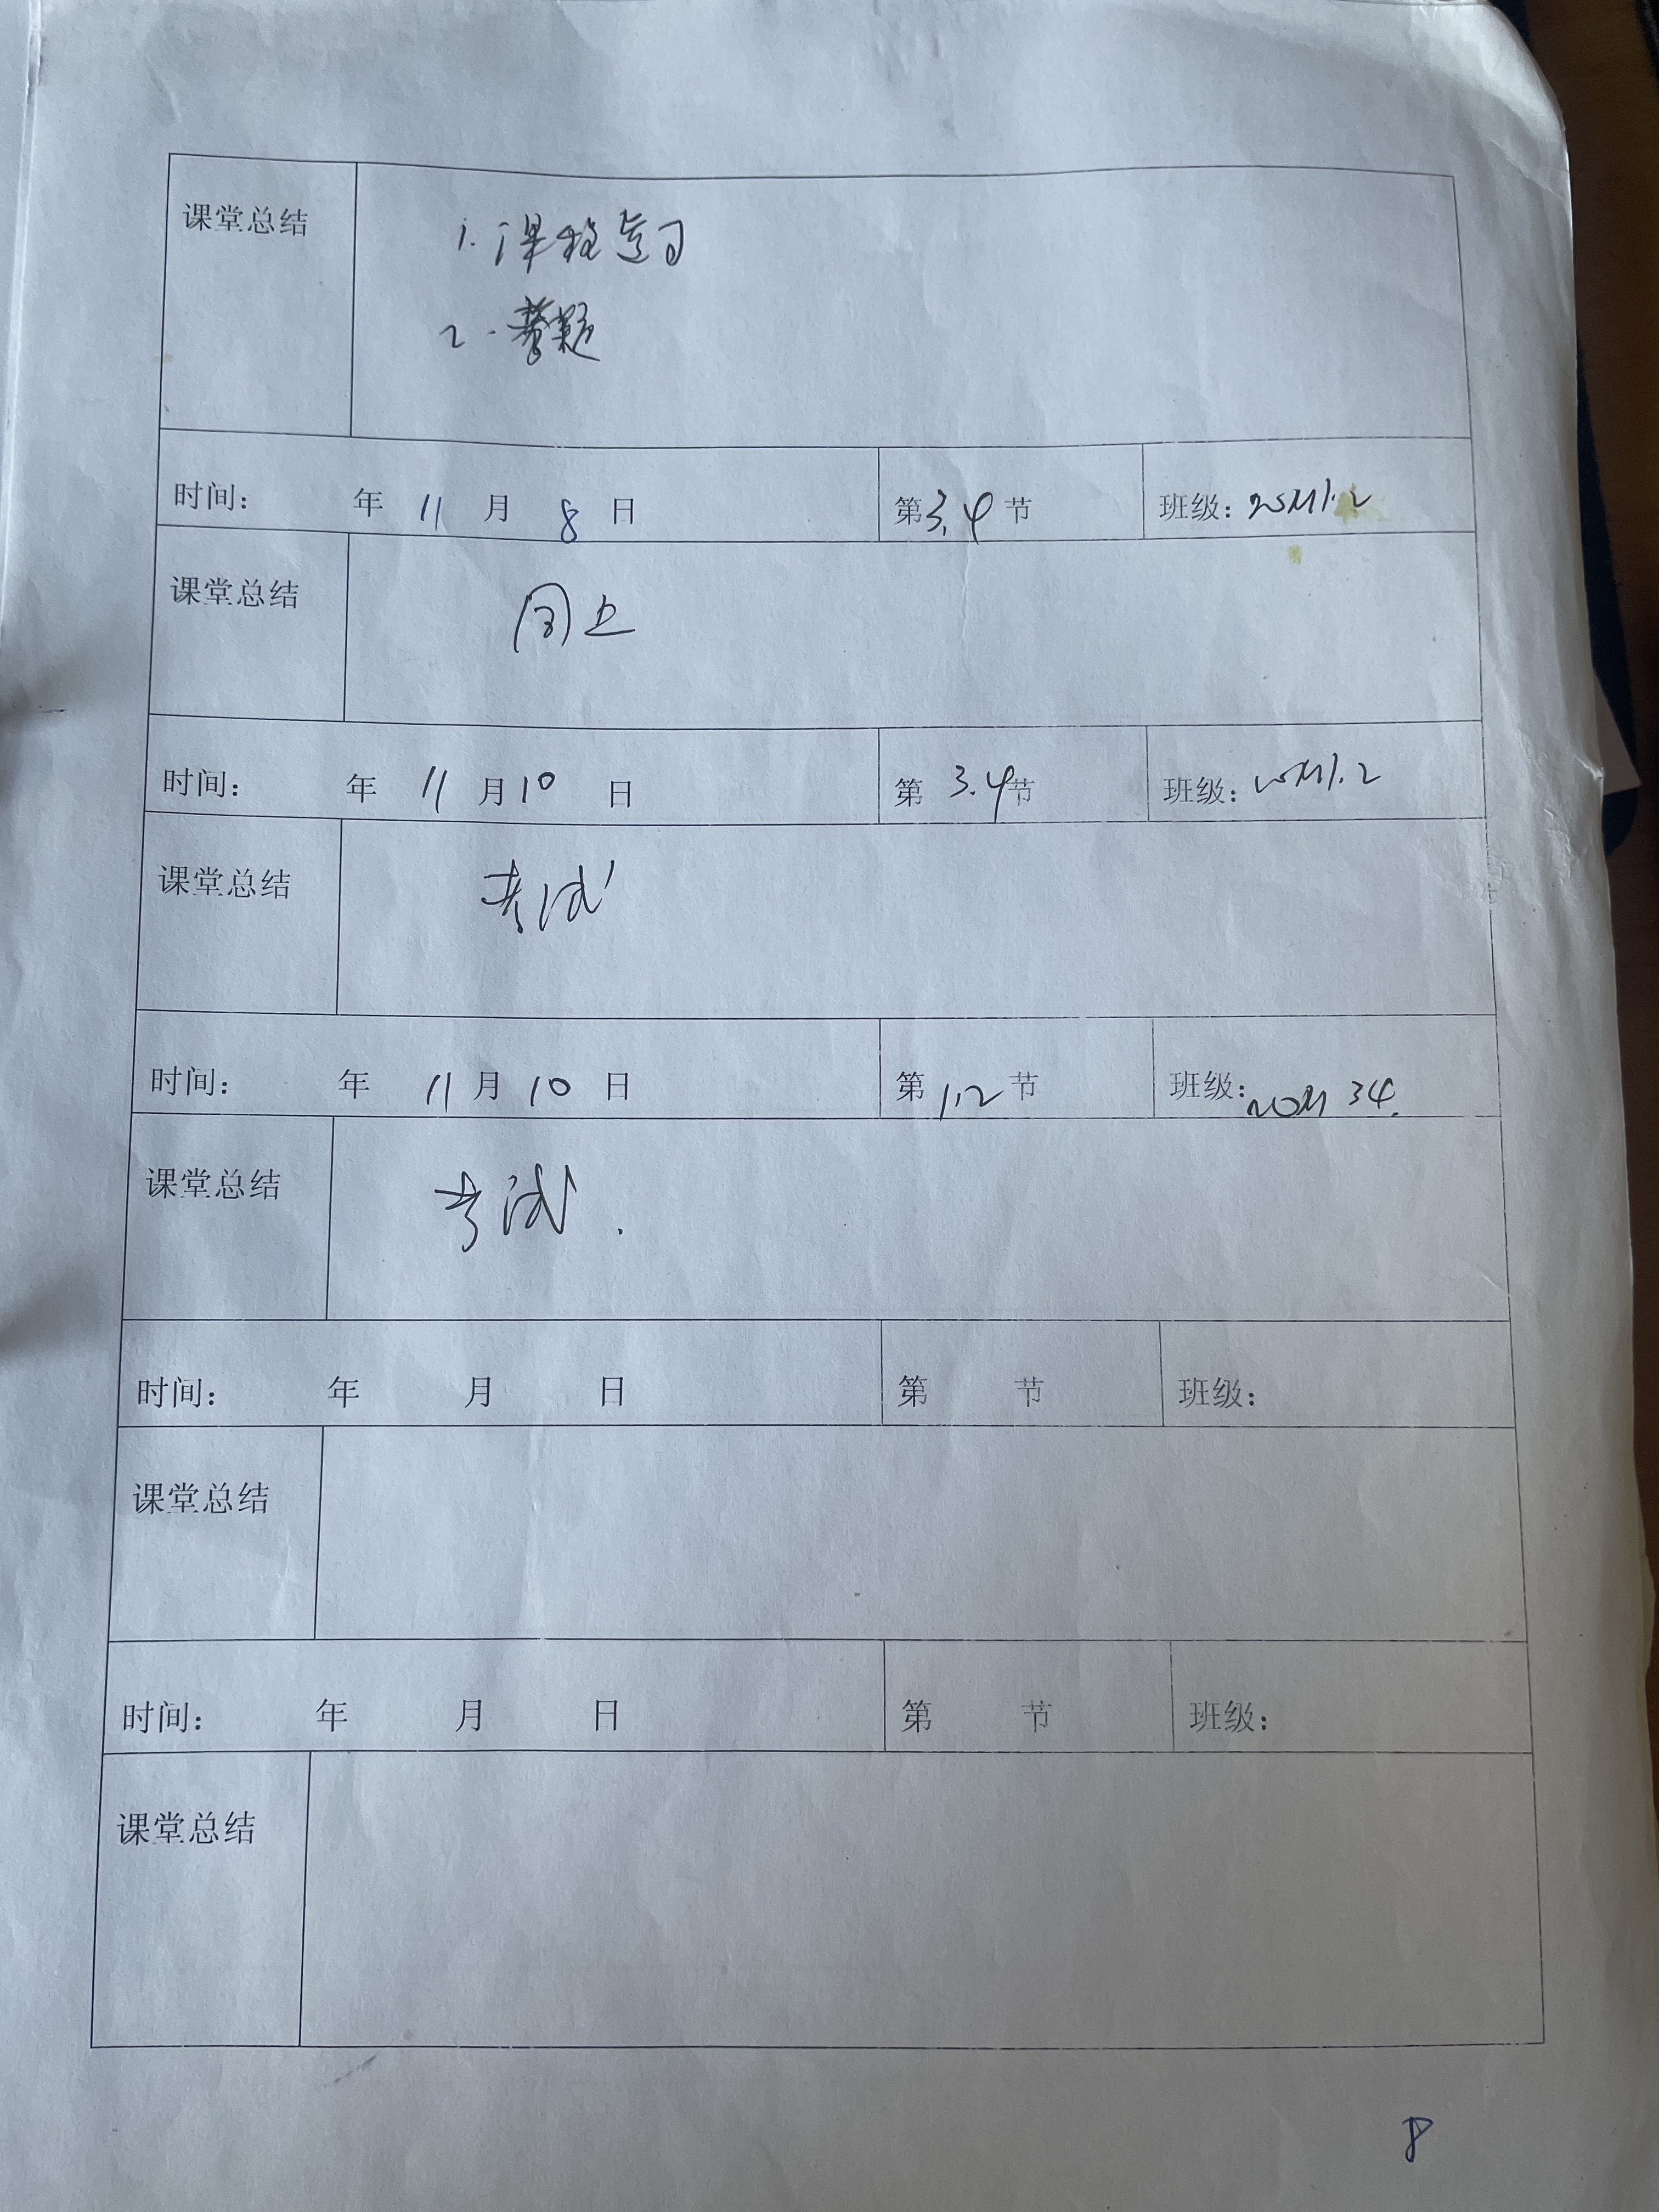 课堂总结 1. 课程复习
2. 答题
时间: 年 11 月 8 日 第 3.4 节 班级:
课堂总结 同上
时间: 年 11 月 10 日 第 3.4 节 班级:
课堂总结 考试
时间: 年 11 月 10 日 第 1.2 节 班级: 20M 34.
课堂总结 考试.
时间: 年 月 日 第 节 班级:
课堂总结
时间: 年 月 日 第 节 班级:
课堂总结
8